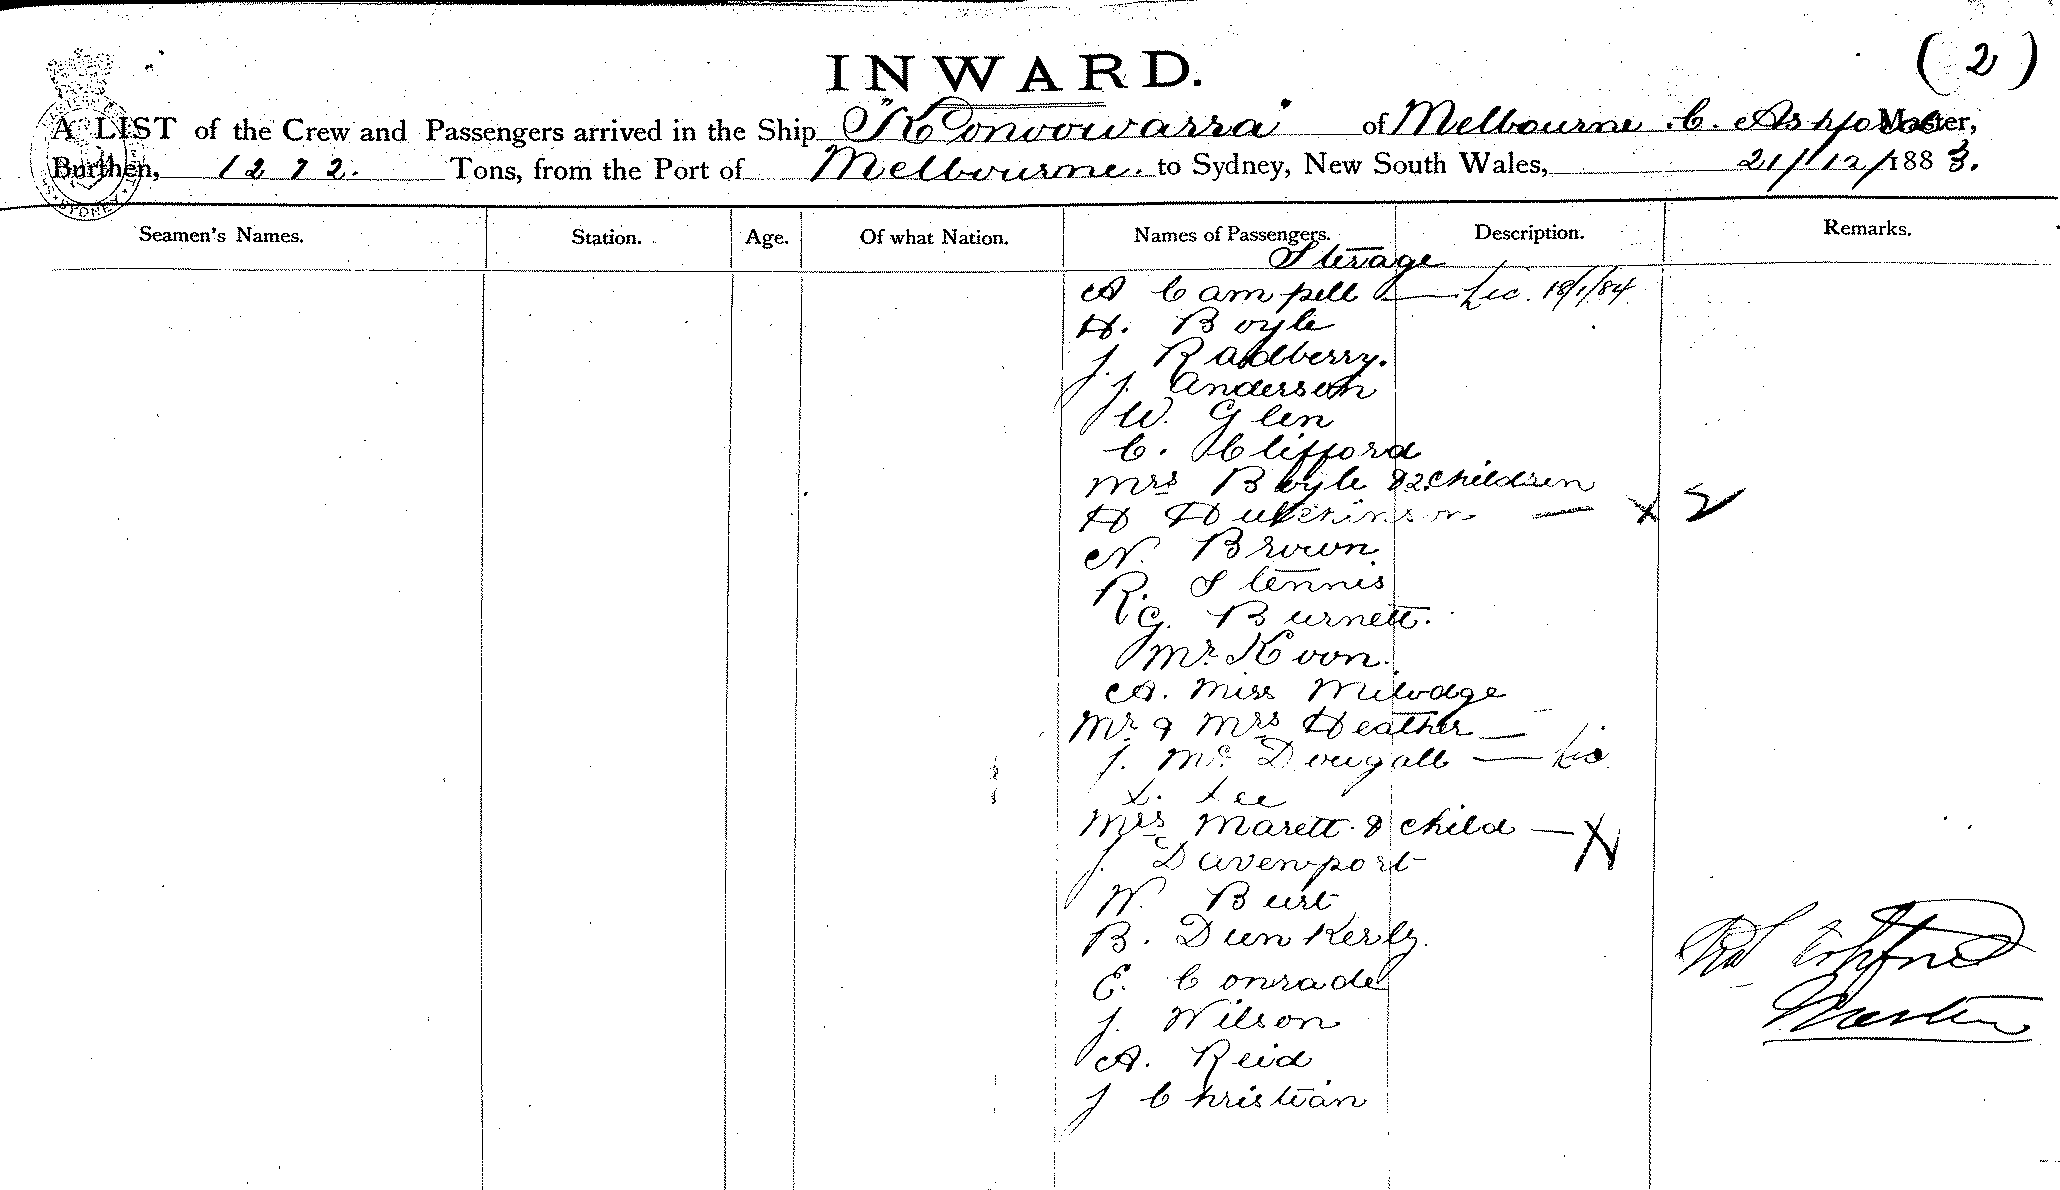 (2)
INWARD.
A LIST of the Crew and Passengers arrived in the Ship "Konoowarra" of Melbourne. C. Ashford Master,
Burthen, 1272. Tons, from the Port of Melbourne. to Sydney, New South Wales, 21/12/1883.
Seamen's Names. Station. Age. Of what Nation. Names of Passengers. Description. Remarks.
Sterage
A Campell — Lic. 18/1/84
H. Boyle
J. Radberry.
J. Anderson
W. Glen
C. Clifford
Mrs Boyle & 2 children
H Hutchinson — x 2
N. Brown
R. Stennis
G. Burnett.
Mr. Koon.
A. Miss Milvdge
Mr & Mrs Heather —
J. Mc Dougall — Lic
L. Lee
Mrs Marett. & child —
J. Davenport
W. Burt
B. Dunkerly.
E. Conrade
J. Wilson
Ashford
A. Reid
Master
J Christian
SYDNEY